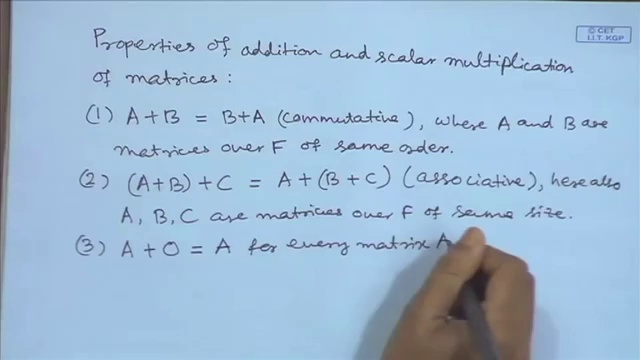 © CET
I.I.T. KGP
Properties of addition and scalar multiplication
of matrices :
(1) A+B = B+A (commutative), where A and B are
matrices over F of same order.
(2) (A+B)+C = A+(B+C) (associative), here also
A, B, C are matrices over F of same size.
(3) A+O = A for every matrix A